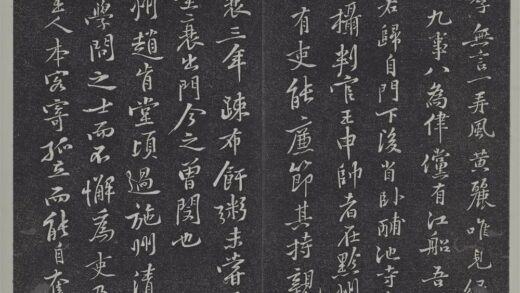 無言一弄風黃麗唯見
九事八為律儻有江船吾
君歸自門下後省卧酺池寺
攝判官王申帥者在黔州
有吏能廉節其持親
喪三年疎布飦粥未嘗
衰出門今之曾閔也
州趙肯堂頃過施州清
學問之士而不懈為吏乃
人本客寄孤立而能自奮